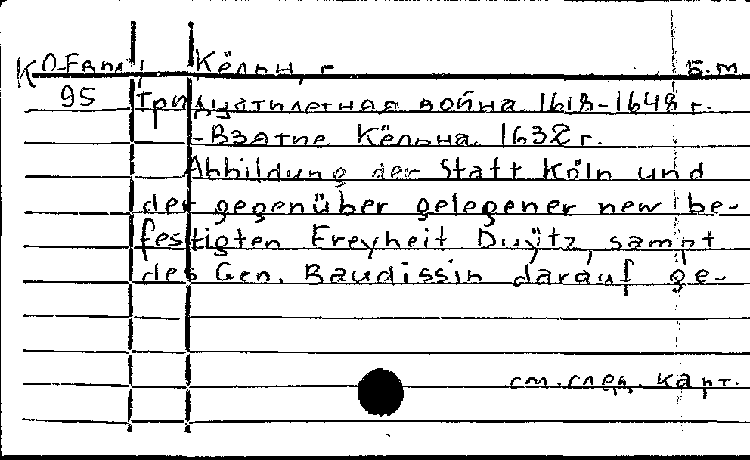 К О-Гапи Кёльн, г Б.м
95 Тридцатилетная война 1618-1648 г.
- Взятие Кёльна. 1632 г.
Abbildung der Statt Köln und
der gegenüber gelegener new be-
festigten Freyheit Duÿtz, sampt
des Gen. Baudissin darauf ge-
см. след. карт.